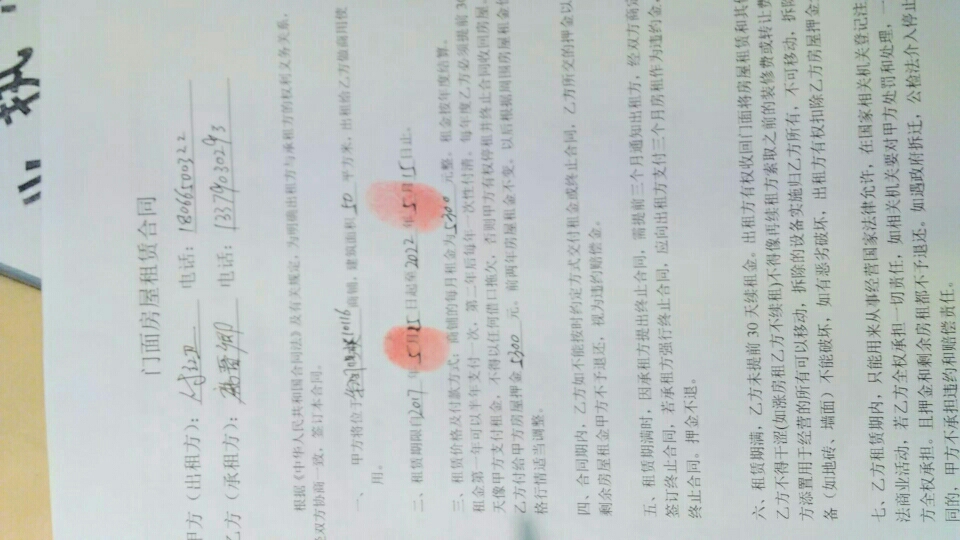 门面房屋租赁合同
甲方（出租方）： 电话：18066500322
乙方（承租方）： 电话：13379030293
根据《中华人民共和国合同法》及有关规定，为明确出租方与承租方的权利义务关系，
经双方协商一致，签订本合同。
一、 甲方将位于 10116 商铺，建筑面积 50 平方米，出租给乙方做商用使
用。
二、租赁期限自2017年5月25日起至2022年5月15日止。
三、租赁价格及付款方式：商铺的每月租金为5300元整。租金按年度给算。
租金第一年可以半年支付一次，第二年后每年一次性付清，每年度乙方必须提前30
天像甲方支付租金，不得以任何借口拖欠，否则甲方有权停租并终止合同收回房屋。
乙方付给甲方房屋押金5300元。前两年房屋租金不变。以后根据周围房屋租金价
格行情适当调整。
四、合同期内，乙方如不能按时约定方式交付租金或终止合同，乙方所交的押金以
剩余房屋租金甲方不予退还，视为违约赔偿金。
五、租赁期满时，因承租方提出终止合同，需提前三个月通知出租方，经双方商定
签订终止合同，若承租方强行终止合同，应向出租方支付三个月房租作为违约金，
终止合同。押金不退。
六、租赁期满，乙方未提前30天续租金。出租方有权收回门面将房屋租赁和其他
乙方不得干涩(如涨房租乙方不续租)不得像再续租方索取之前的装修费或转让费
方添置用于经营的所有可以移动，拆除的设备实施归乙方所有，不可移动，拆除
备（如地砖、墙面）不能破坏，如有恶劣破坏，出租方有权扣除乙方房屋押金
七、乙方租赁期内，只能用来从事经营国家法律允许，在国家相关机关登记注
法商业活动，若乙方全权承担一切责任，如相关机关要对甲方处罚和处理，一
方全权承担。且押金和剩余房租都不予退还。如遇政府拆迁，公检法介入停止
同的，甲方不承担违约和赔偿责任。